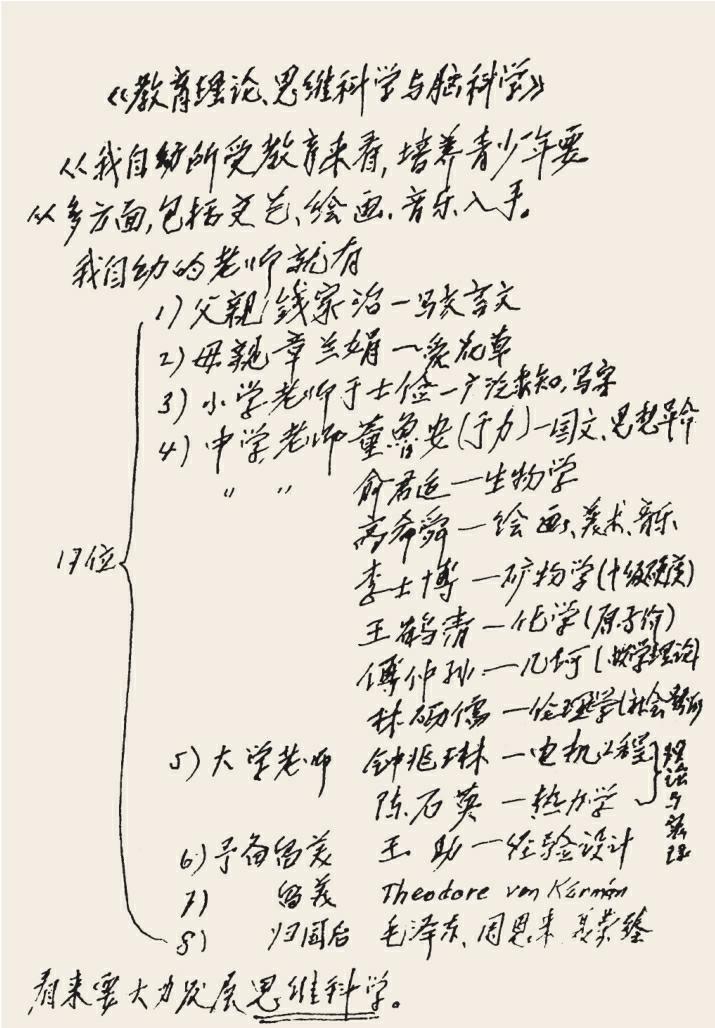 《教育理论、思维科学与脑科学》
从我自幼所受教育来看,培养青少年要
从多方面,包括文艺、绘画、音乐入手。
我自幼的老师就有
17位
1)父親 钱家治—写文言文
2)母親 章兰娟—爱花草
3)小学老师于士俭—广泛求知,写字
4)中学老师 董鲁安(于力)—国文、思想革命
〃 〃 俞君适—生物学
高希舜—绘画、美术、音乐
李士博—矿物学(十级硬度)
王鹤清—化学(原子价)
傅仲孙—几何(数学理论)
林砺儒—伦理学(社会
5)大学老师 钟兆琳—电机工程
陈石英—热力学
理论与实际
6)予备留美 王助—经验设计
7) 留美 Theodore von Kármán
8) 归国后 毛泽东、周恩来 聂荣臻
看来要大力发展思维科学。